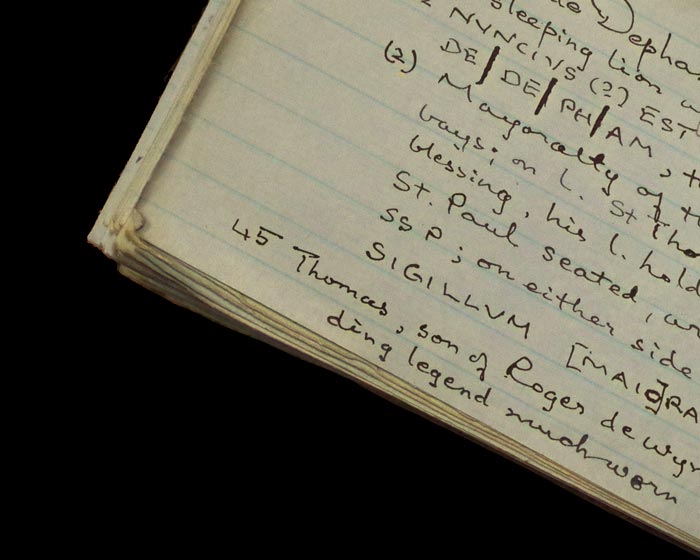 de Depha
sleeping lion
NVNCIVS (?) EST
DE/DE/PH/AM, t
(2) Mayoralty of t
bays; on l. St Tho
blessing, his l. hold
St. Paul seated,
SSP; on either side
SIGILLVM [MAIO]RA
45 Thomas, son of Roger de wyn
ding legend much worn